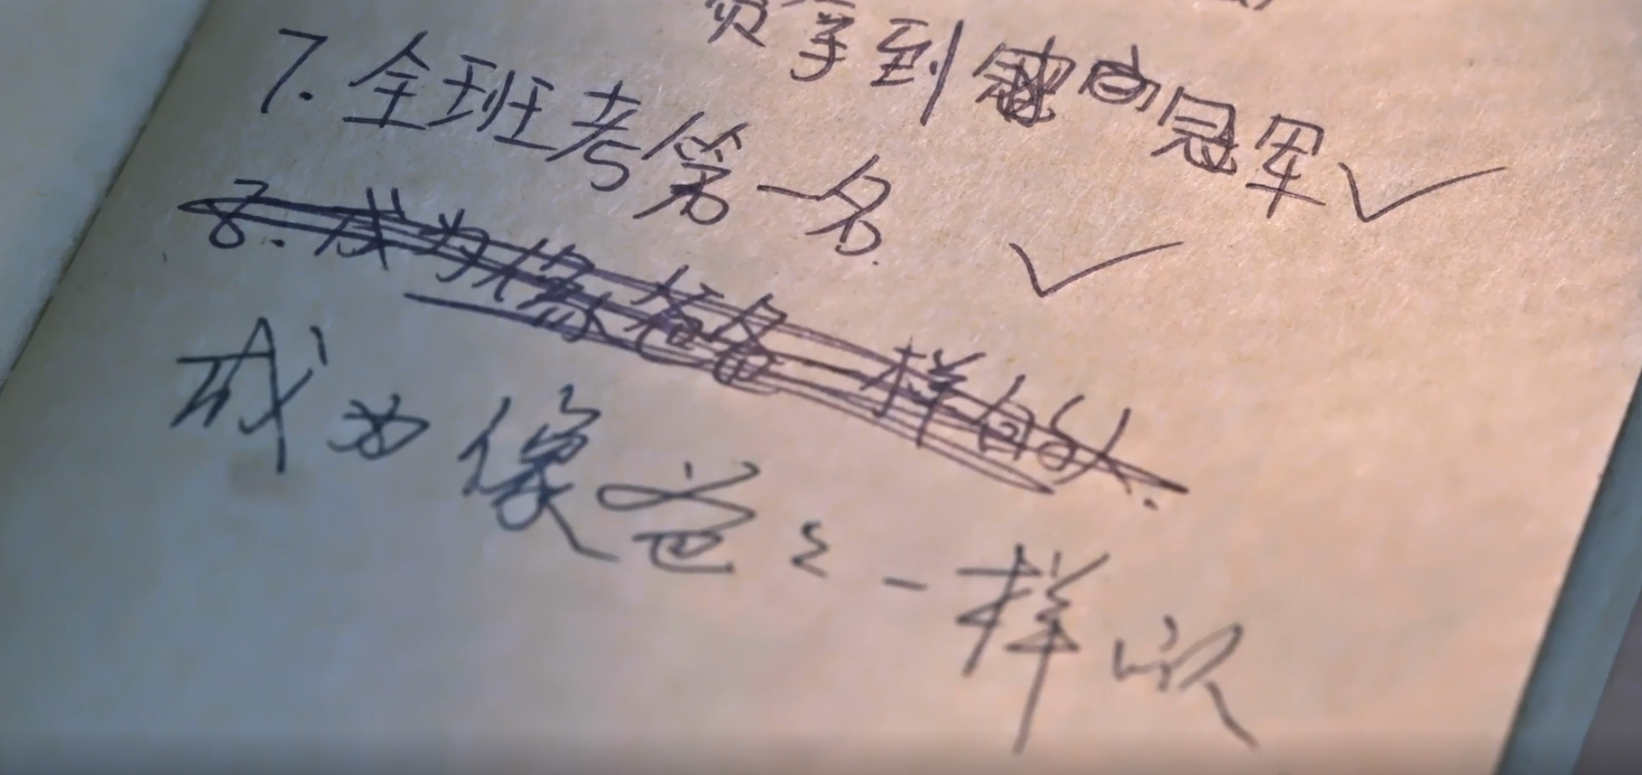 拿到冠军✓
7.全班考第一名.✓
8.成为像爸爸一样的人.
成为像爸爸一样的人